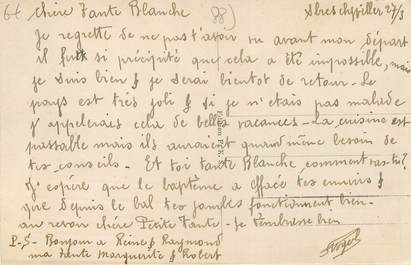 64 chère Tante Blanche 88)
27/3
Je regrette de ne pas t'avoir vu avant mon départ
il fut si précipité que cela a été impossible, mais
je suis bien & je serai bientot de retour - Le
pays est très joli & si je n'etais pas malade
j'appelerais cela de belles vacances - La cuisine est
passable mais ils auraient quand même besoin de
tes conseils. Et toi tante Blanche, comment vas-tu?
J'espère que le baptême a effacé tes ennuis &
que depuis le bal tes jambes fonctionnent bien -
au revoir chère Petite Tante - Je t'embrasse bien
P-S- Bonjour a Reine & Raymond
ma tante Marguerite & Robert